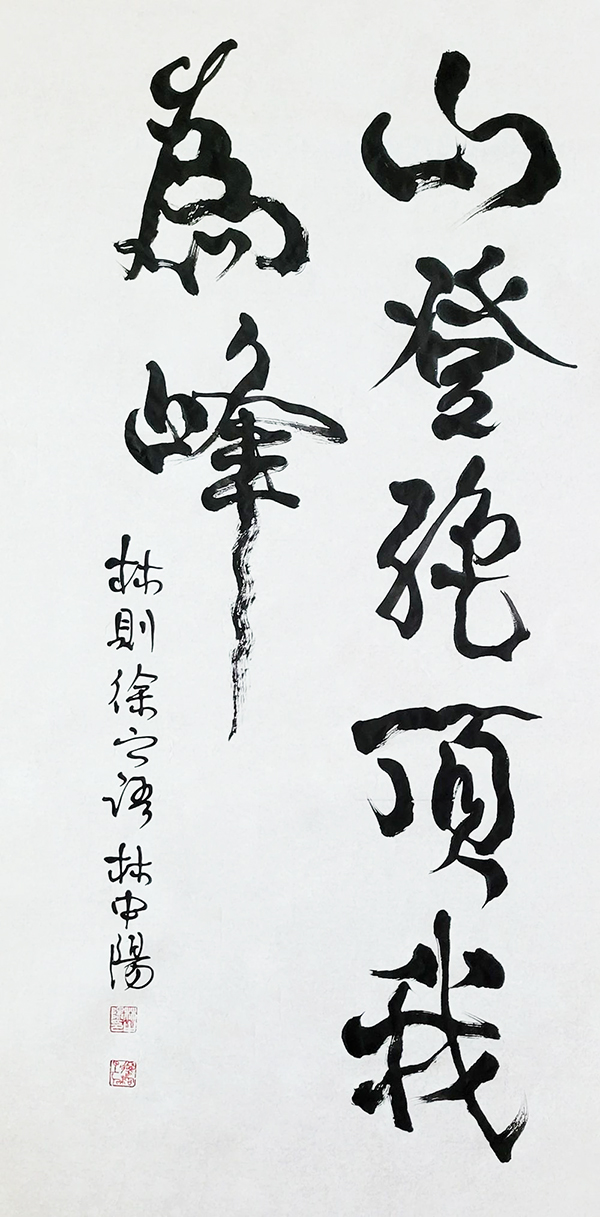 山登絕頂我
為峰
林則徐之語 林中陽